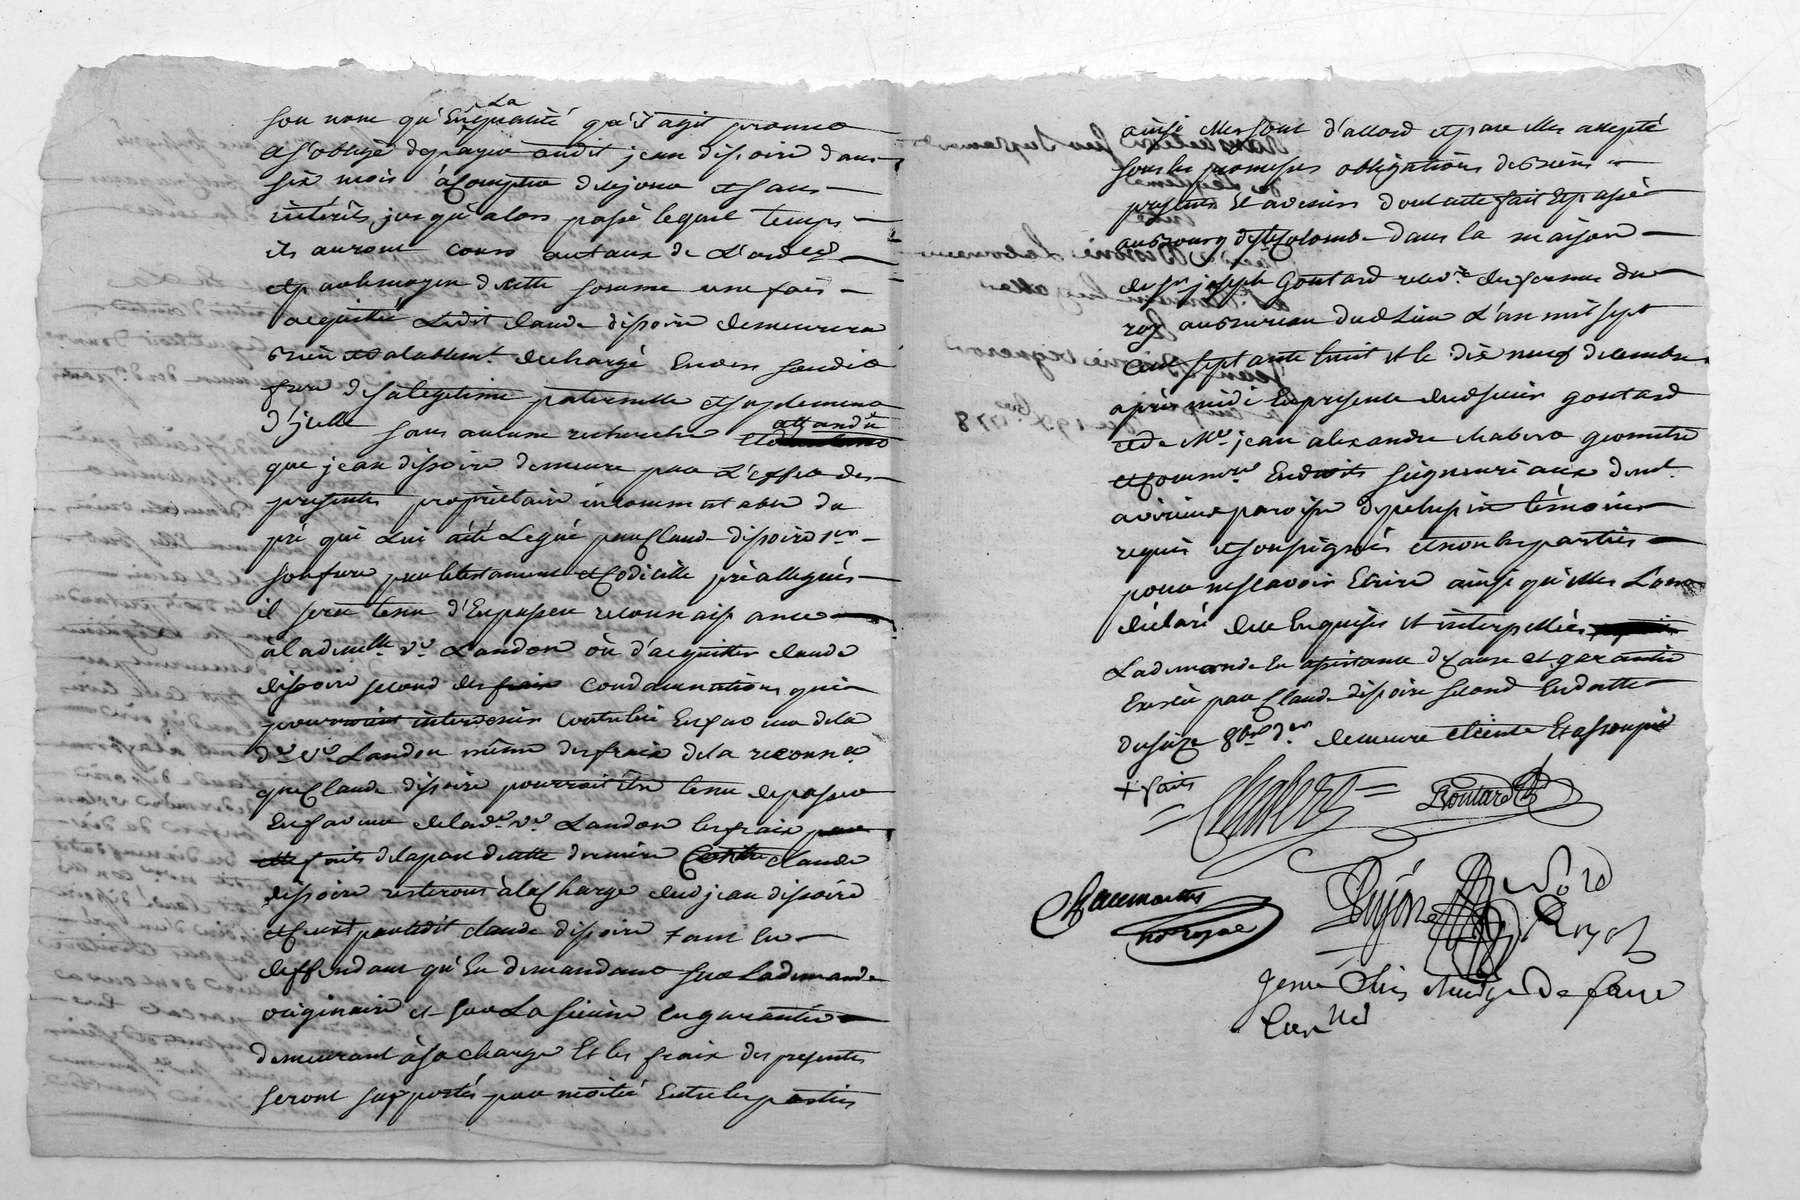 La
son nom qu'En qualité qu'il agit promet
et s'oblige de payer audit jean dispoire dans
six mois à Compter de ce jour et sans
intérêts jusqu'alors passé lequel temps
ils auront cours au taux de L'ordce
et par le moyen de cette somme une fois
acquittée Ledit Claude dispoire demeurera
Bien et valablemt. dechargé Envers sondit
frere de sa legitime paternelle et suplement
d'jcelle sans aucune recherche attandu
que jean dispoire demeure par L'effet des
presentes proprietaire incommutable du
pré qui Lui a été Legué par Claude dispoire 1er
son frere par le testament et Codicille préallegués
il sera tenu d'En passer reconnaissance
à la demlle ve Landon où d'acquitter claude
dispoire second des frais condamnations qui
pourroient intervenir Contre lui En faveur de la
de ve Landon même des frais de la reconnce
que Claude dispoire pourroit être tenu de passer
En faveur de lade ve Landon les frais par
elle faits de la part de cette derniere Contre claude
dispoire resteront à la Charge dud jean dispoire
et ceux par ledit claude dispoire tant En
deffendant qu'En demandant sur La demande
originaire et sur La sienne En garantie
demeurant à sa charge Et les fraix des presentes
seront supportés par moitié Entre les parties
ainsi Elles sont d'accord et par Elles accepté
sous les promesses obligations de Biens
presents Et avenirs dont acte fait Et passé
au Bourg de Ste Colombe dans la maison
de sr joseph Goutard recevr. des fermes du
roy au Bureau dud Lieu L'an mil sept
Cent septante huit et le dix neuf decembre
après midi En presence dud sieur goutard
et de Me. jean alexandre chabert geometre
et Commre En droits seigneuriaux demt.
à virieux paroisse de pelussin témoins
requis et soussignés et non les parties
pour ne sçavoir Ecrire ainsi qu'Elles L'ont
déclaré de ce Enquises et interpellées
La demande En assistance de Cause et garantie
Exercée par Claude dispoire second En datte
du seize 8bre der. demeure eteinte Et assoupie
+ faits
Chabert Goutard
not royal